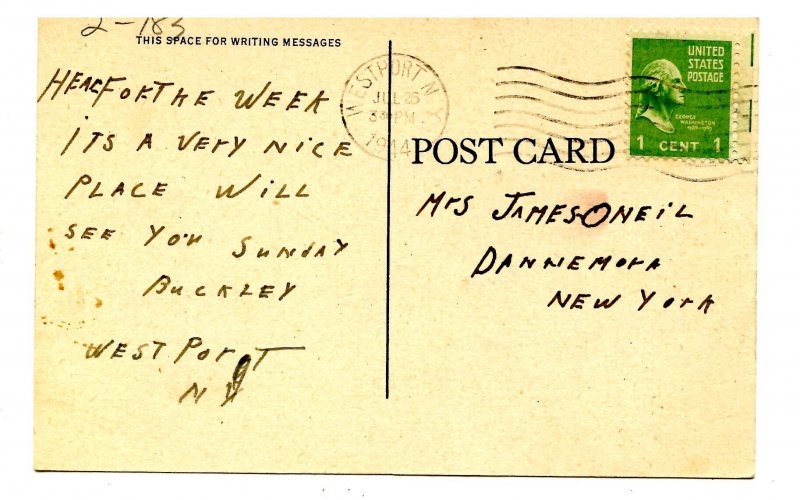 2-183
THIS SPACE FOR WRITING MESSAGES
HEAR FOR THE WEEK
ITS A VERY NICE
PLACE WILL
SEE YOU SUNDAY
BUCKLEY
WEST PORT
N Y
WESTPORT N.Y.
JUL 25
3 30 PM
1944
UNITED
STATES
POSTAGE
GEORGE
WASHINGTON
1 CENT 1
POST CARD
Mrs JAMES ONEIL
DANNEMORA
NEW YORK